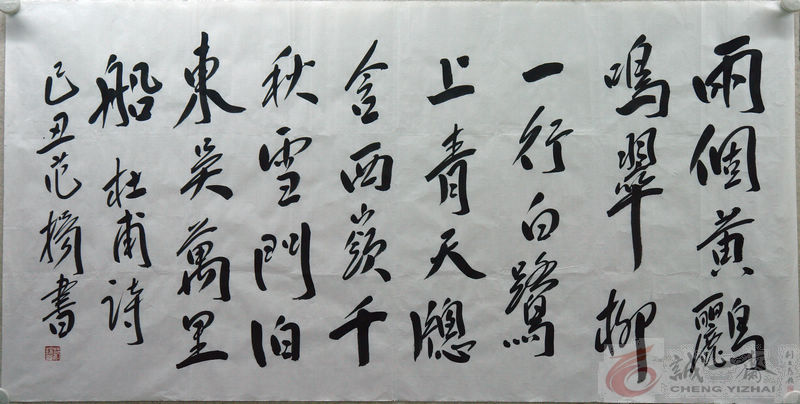 兩個黃鸝
鳴翠柳
一行白鷺
上青天牕
含西嶺千
秋雪門泊
東吳萬里
船 杜甫詩
己丑范書
誠一齋
CHENG YIZHAI